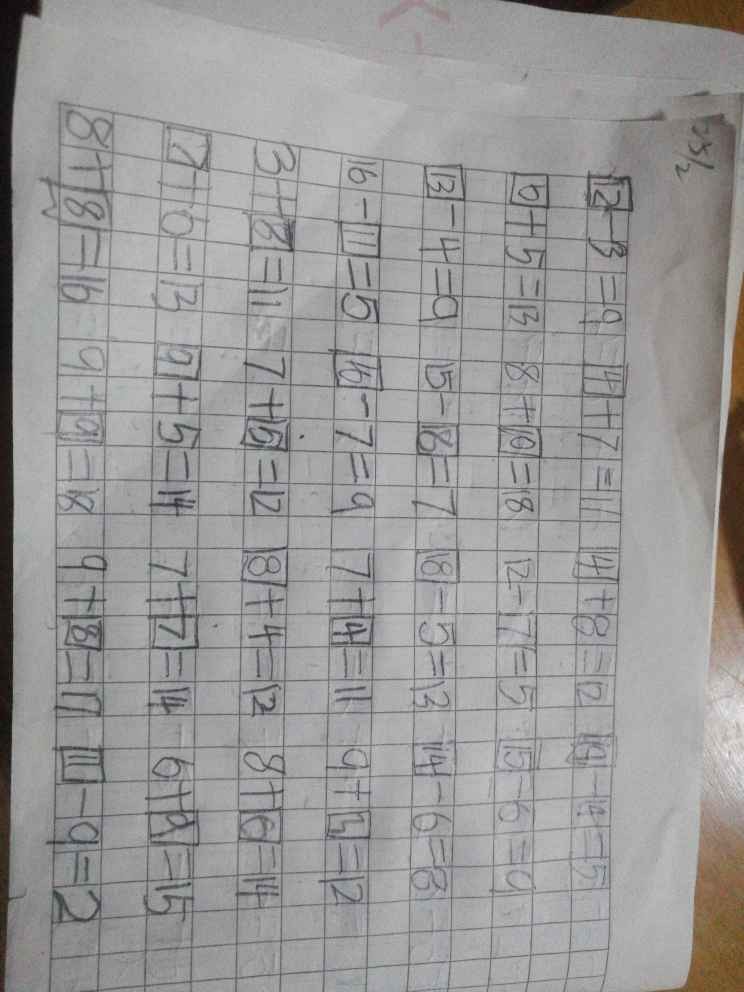 12-3=9 4+7=11 4+8=12 19-14=5
+5=13 8+10=18 12-7=5 15-6=9
13-4=9 15-8=7 18-5=13 14-6=8
16-11=5 16-7=9 7+4=11 9+3=12
3+8=11 7+5=12 8+4=12 8+6=14
7+6=13 9+5=14 7+7=14 6+9=15
8+8=16 9+9=18 9+8=17 11-9=2